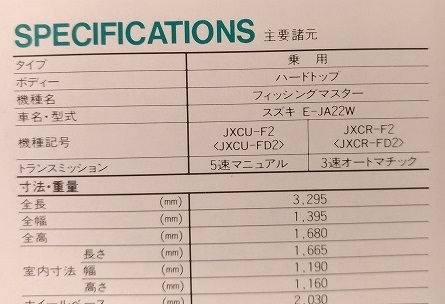 SPECIFICATIONS 主要諸元
タイプ 乗 用
ボディー ハードトップ
機種名 フィッシングマスター
車名・型式 スズキ E-JA22W
機種記号 JXCU-F2 <JXCU-FD2> JXCR-F2 <JXCR-FD2>
トランスミッション 5速マニュアル 3速オートマチック
寸法・重量
全長 (mm) 3,295
全幅 (mm) 1,395
全高 (mm) 1,680
室内寸法 長さ (mm) 1,665
幅 (mm) 1,190
高さ (mm) 1,160
ホイールベース (mm) 2,030